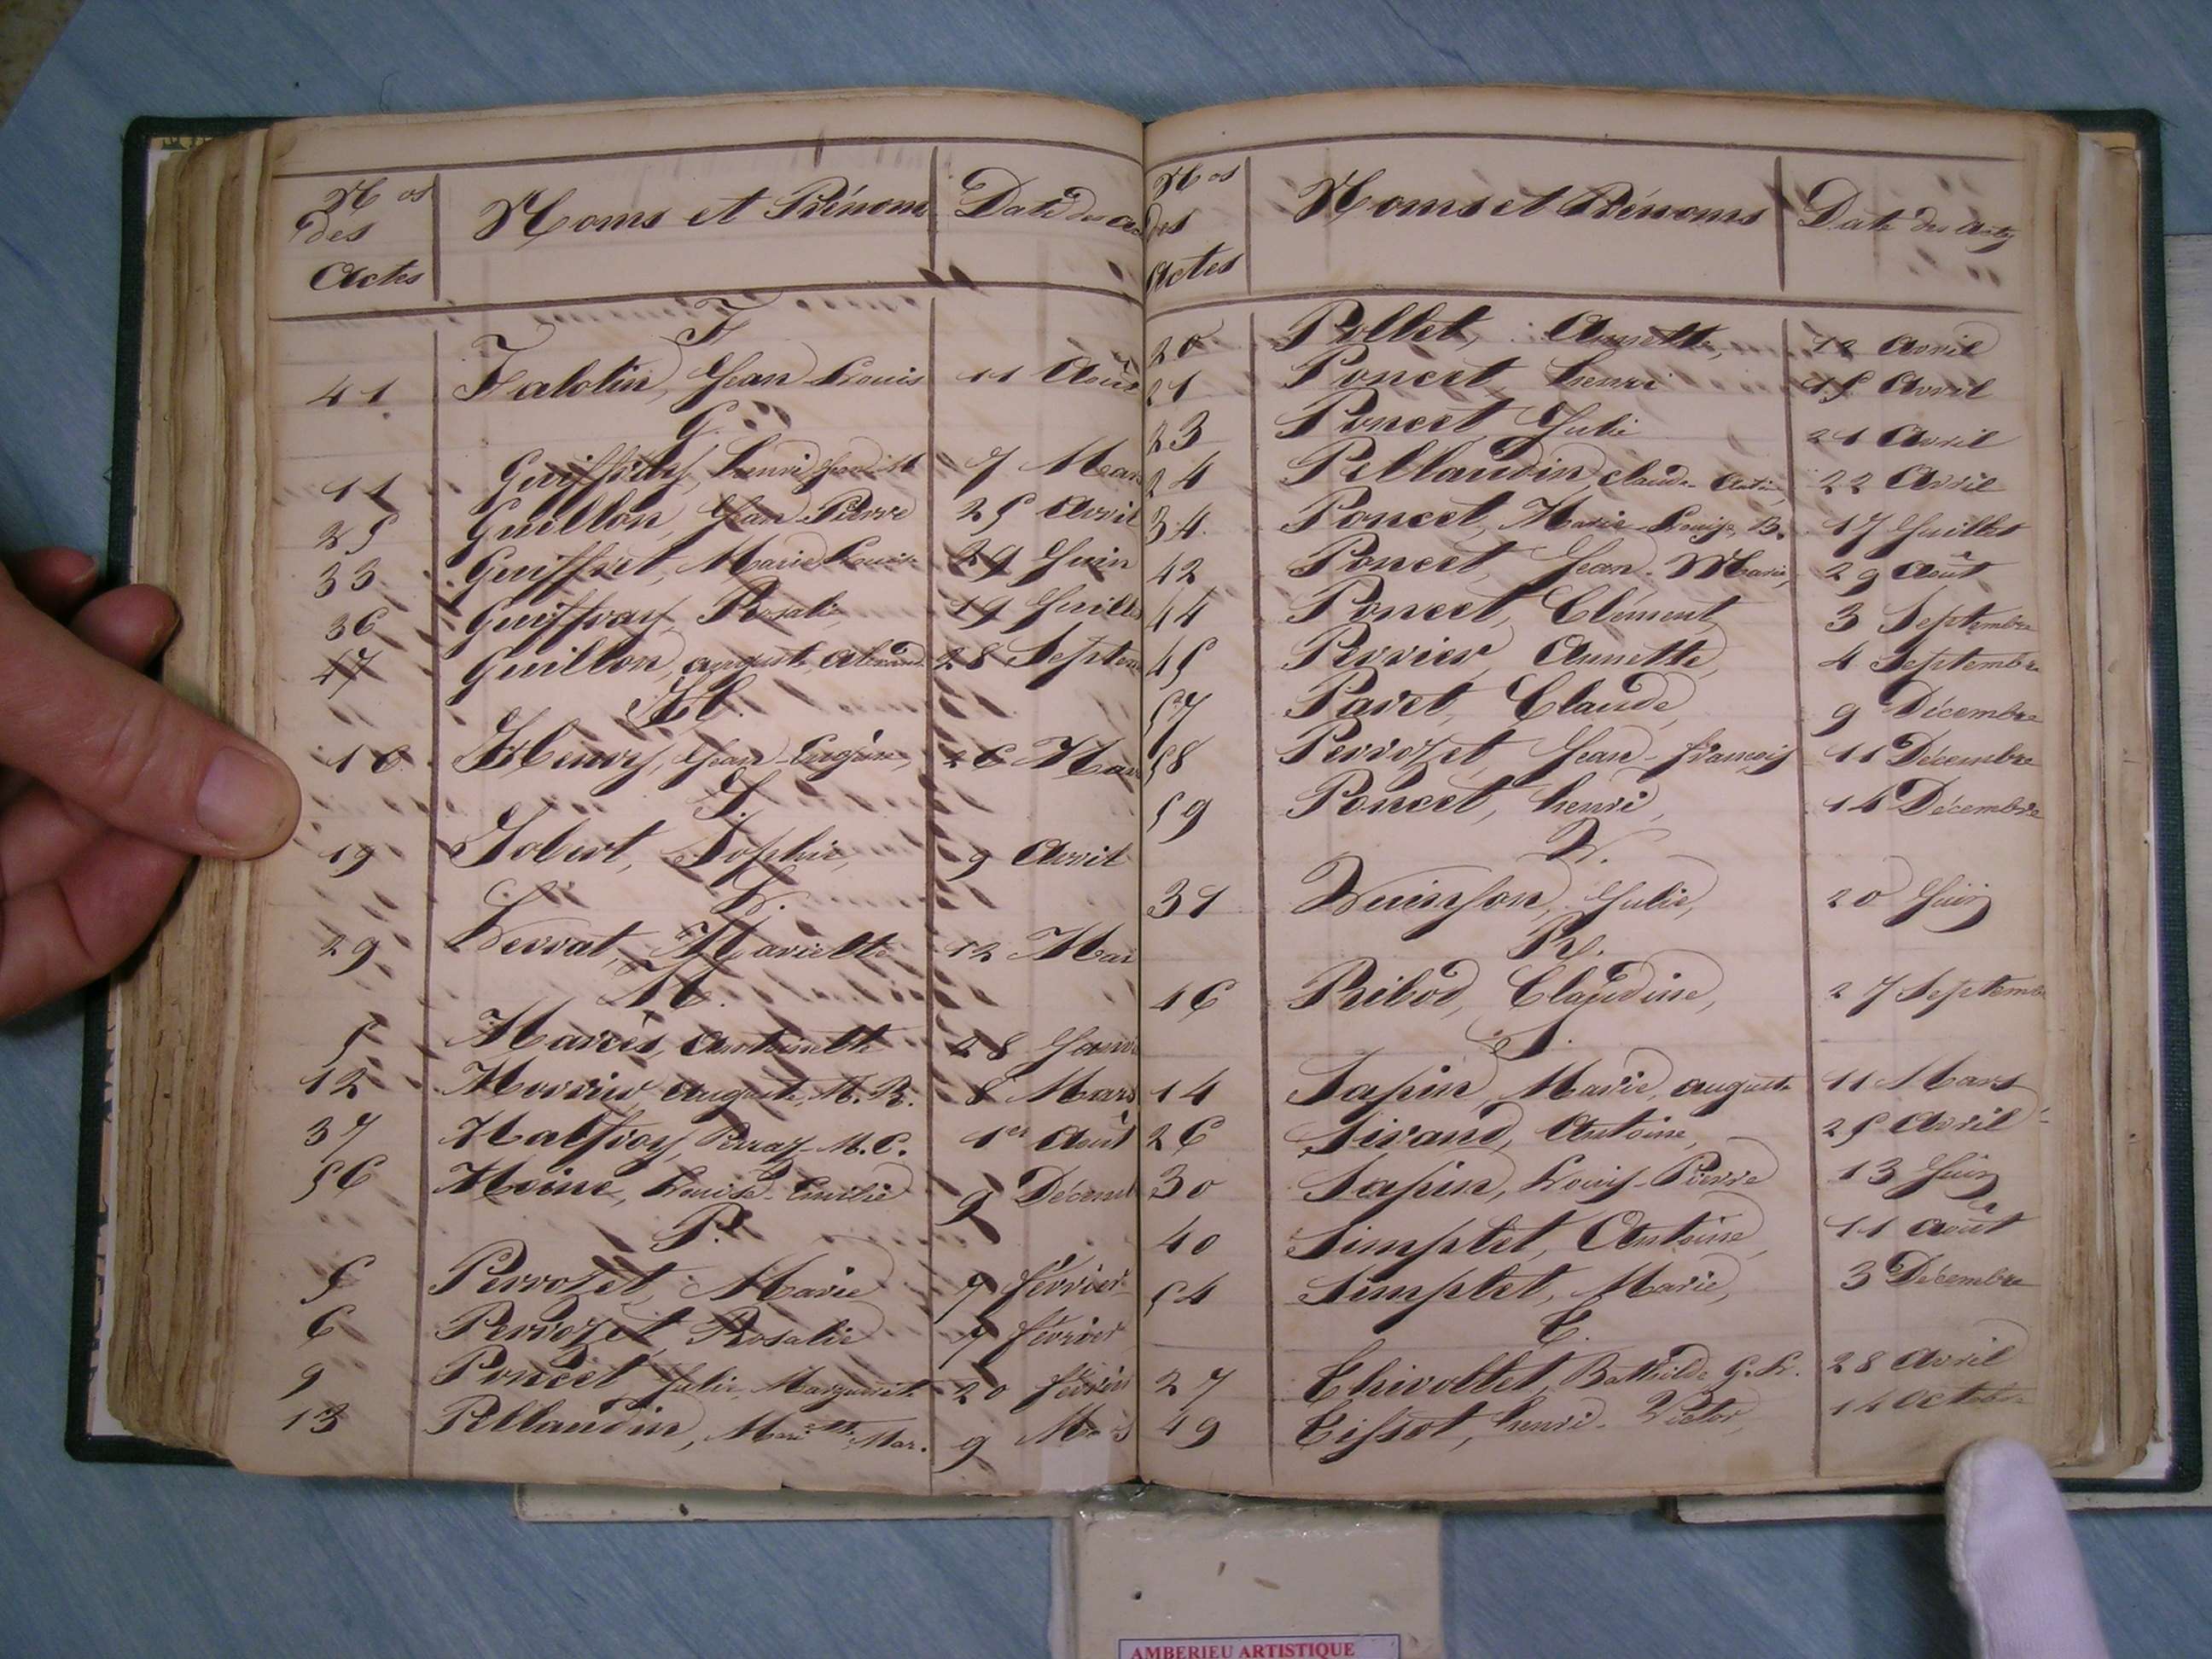 Nos des Actes Noms et Prénoms Date des
F
41 Falotin, Jean Louis 11 Août
G.
11 Guiffray, henri 7 Mars
25 Guillon, Jean-Pierre 25 Avril
33 Guiffret, Marie Louise 29 Juin
36 Guiffray, Rosalie 19 Juillet
47 Guillon, auguste 28 Septem
H.
16 Henry, Jean-Eugène, 26 Mars
J.
19 Jobert, Sophie, 9 Avril
L.
29 Mariette 12 Mai
M.
5 antoinette 28 Janvi
12 auguste, M. R. 8 Mars
37 Perraz-M.C. 1er Août
56 Moine, Louise-Emilie 9 Décemb
P.
5 Perrozet, Marie 7 février
6 Perrozet, Rosalie 7 février
9 Poncet, Julie, Marguerite 20 février
13 Pellaudin, Mar. 9 Mars
Nos des Actes Noms et Prénoms Date des actes
20 Pollet, Annette, 12 avril
21 Poncet, henri 15 Avril
23 Poncet, Julie 21 Avril
24 Pellaudin, claude- 22 Avril
34 Poncet, Marie-Louise, B. 17 Juillet
42 Poncet, Jean-Marie, 29 Août
44 Poncet, Clément, 3 Septembre
45 Perrier, Annette, 4 Septembre
57 Pavet, Claude, 9 Décembre
58 Perrozet, Jean-françois 11 Décembre
59 Poncet, henri, 14 Décembre
Q.
31 Quinson, Julie, 20 Juin
R.
46 Ribod, Claudine, 27 Septemb
S.
14 Sapin, Marie, auguste 11 Mars
26 Sivand, Antoine, 25 Avril
30 Sapin, Louis-Pierre 13 Juin
40 Simplet, Antoine, 11 août
54 Simplet, Marie, 3 Décembre
T.
27 Thivollet, Bathilde G. L. 28 Avril
49 Tissot, henri-Victor, 14 Octobre
AMBERIEU ARTISTIQUE